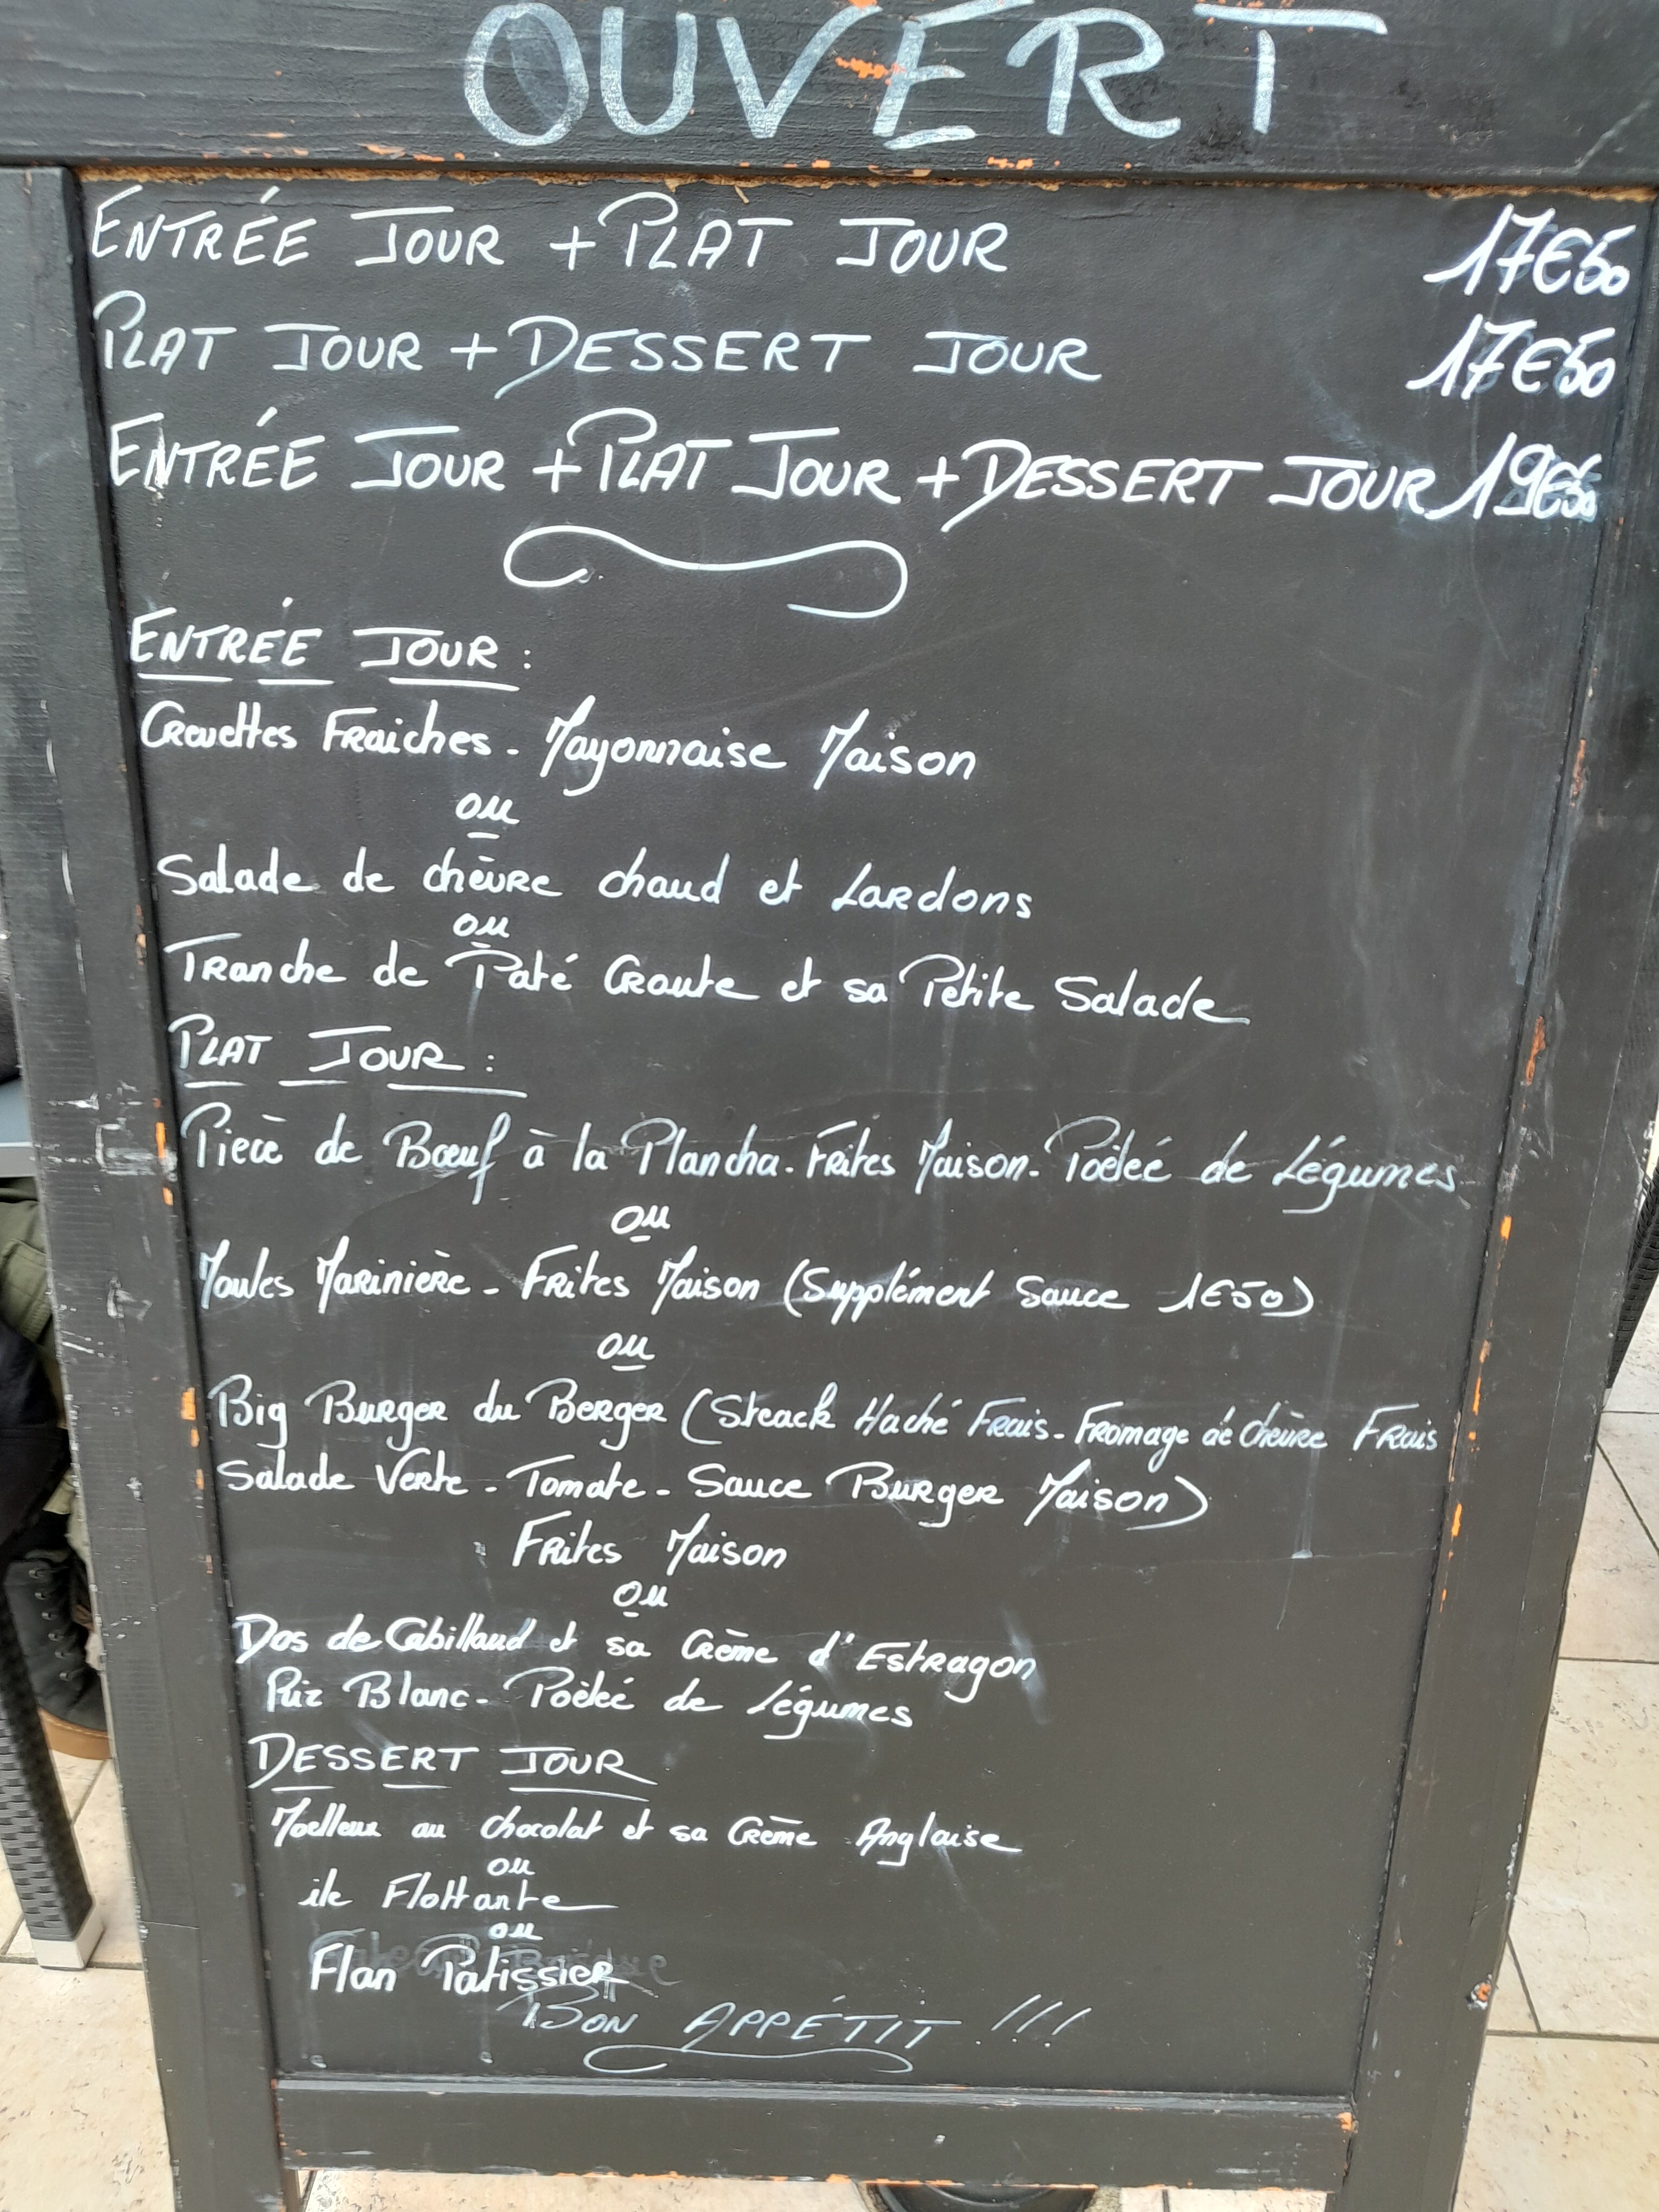 OUVERT
ENTRÉE JOUR + PLAT JOUR 17€50
PLAT JOUR + DESSERT JOUR 17€50
ENTRÉE JOUR + PLAT JOUR + DESSERT JOUR 19€50
ENTRÉE JOUR :
Crevettes Fraiches - Mayonnaise Maison
ou
Salade de chèvre chaud et Lardons
ou
Tranche de Paté Croute et sa Petite Salade
PLAT JOUR :
Pièce de Bœuf à la Plancha - Frites Maison - Poêlée de Légumes
ou
Moules Marinière - Frites Maison (Supplément Sauce 1€50)
ou
Big Burger du Berger (Steack Haché Frais - Fromage de chèvre Frais
Salade Verte - Tomate - Sauce Burger Maison)
Frites Maison
ou
Dos de Cabillaud et sa Crème d'Estragon
Riz Blanc - Poêlée de Légumes
DESSERT JOUR
Moelleux au chocolat et sa Crème Anglaise
ou
ile Flottante
ou
Flan Patissier
BON APPÉTIT !!!